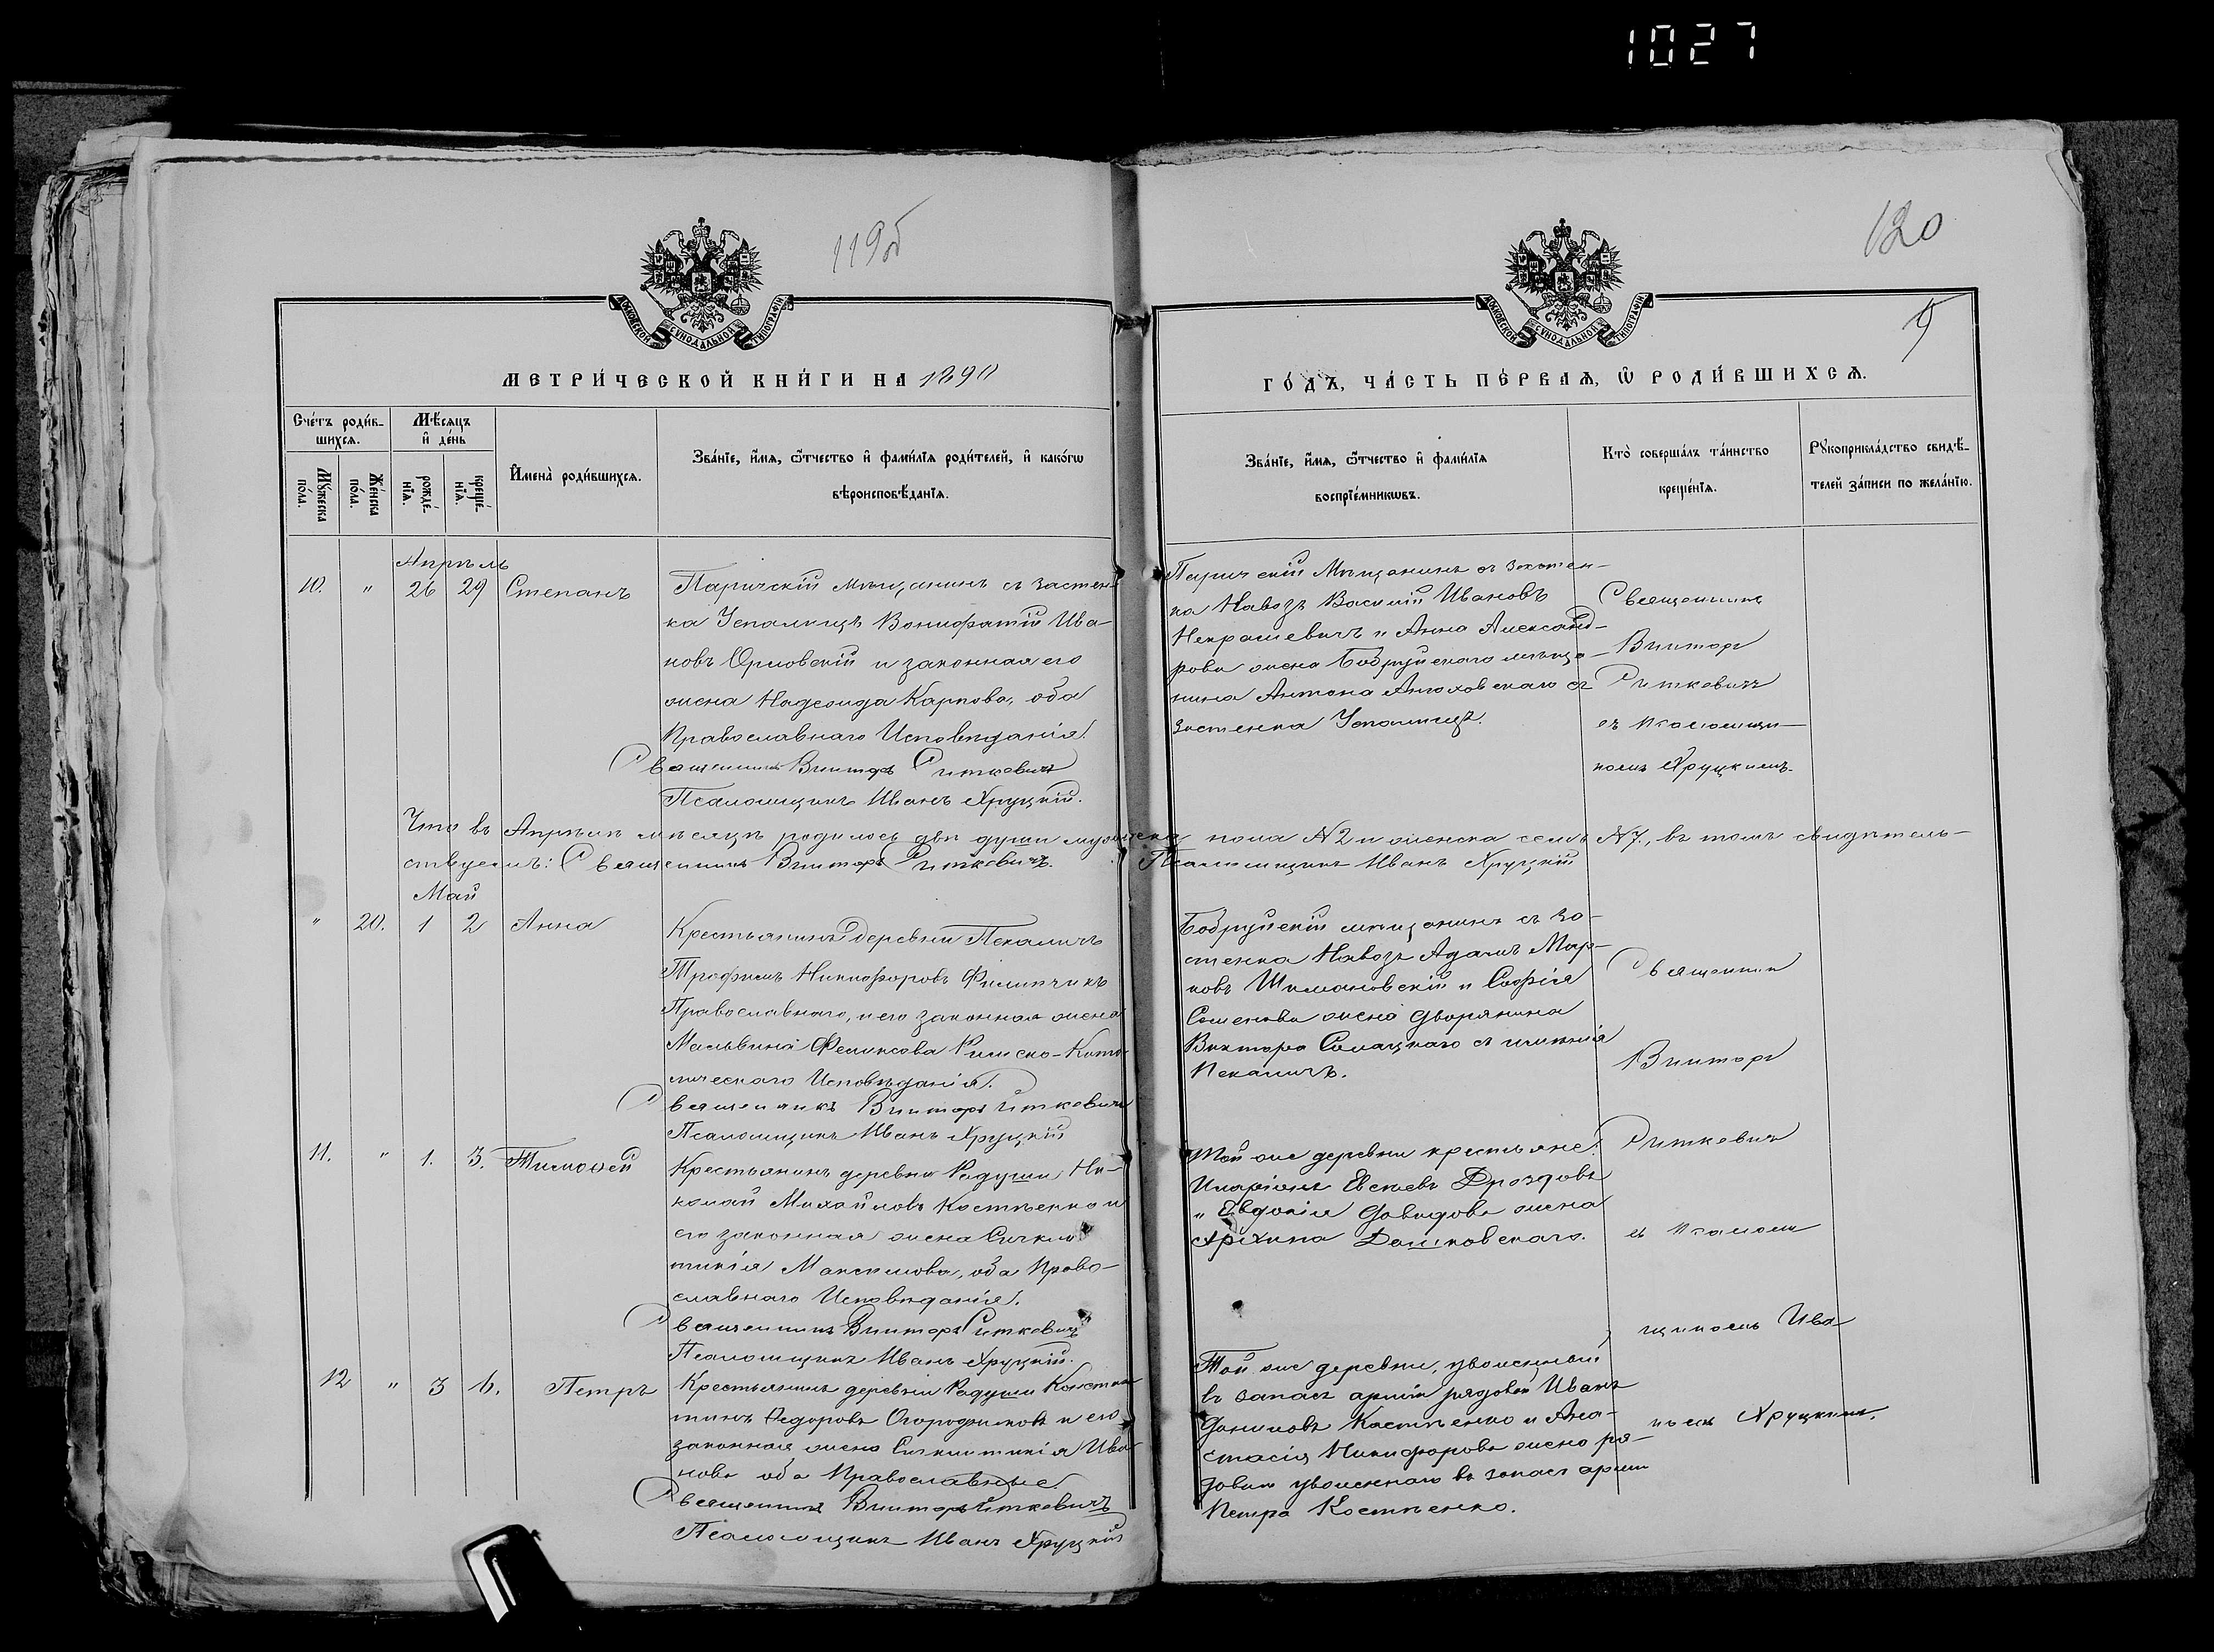 1027
119б
120
МОСКОВСКОЙ СѴНОДАЛЬНОЙ ТИПОГРАФІИ
МОСКОВСКОЙ СѴНОДАЛЬНОЙ ТИПОГРАФІИ
МЕТРИ́ЧЕСКОЙ КНИ́ГИ НА 1890
ГО́ДЪ, ЧА́СТЬ ПЕ́РВАѦ, Ѡ҆ РОДИ́ВШИХСѦ.
Сче́тъ роди́в-
шихсѧ.
Мѣ́сѧцъ
и҆ де́нь
Мꙋ́жеска
по́ла.
Же́нска
по́ла.
рожде́-
нїѧ.
креще́-
нїѧ.
И҆мена̀ роди́вшихсѧ.
Зва́нїе, и҆́мѧ, ѻ҆́тчество и҆ фами́лїѧ роди́телей, и҆ како́гѡ
вѣроисповѣ́данїѧ.
Зва́нїе, и҆́мѧ, ѻ҆́тчество и҆ фами́лїѧ
воспрїе́мникѡвъ.
Кто̀ соверша́лъ та́инство
креще́нїѧ.
Рꙋкоприкла́дство свидѣ́-
телей за́писи по жела́нїю.
Апрѣль
10. " 26 29 Степанъ
Паричскій мѣщанинъ съ застен-
ка Успалищъ Вонифатій Ива-
новъ Орловскій и законная его
жена Надежда Карпова, оба
Православнаго Исповѣданія.
Священникъ Викторъ Ситкевичъ
Псаломщикъ Иванъ Хруцкій.
Паричскій Мѣщанинъ съ застен-
ка Навозъ Василій Ивановъ
Некрашевичъ и Анна Александ-
рова жена Бобруйскаго мѣща-
нина Антона съ
застенка Успалищъ.
Священникъ
Викторъ
Ситкевичъ
съ псаломщи-
комъ Хруцкимъ.
Что въ Апрѣлѣ мѣсяцѣ родилось двѣ души мужеска пола №2 и женска семь №7, въ томъ свидѣтель-
ствуемъ: Священникъ Викторъ Ситкевичъ. Псаломщикъ Иванъ Хруцкій
Май
" 20. 1 2 Анна
Крестьянинъ деревни Пекаличъ
Трофимъ Никифоровъ Филипчикъ
Православнаго, и его законная жена
Мальвина Феликсова Римско-Като-
лическаго Исповѣданія.
Священникъ Викторъ Ситкевичъ
Псаломщикъ Иванъ Хруцкій
Бобруйскій мѣщанинъ съ за-
стенка Навозъ Адамъ Мар-
ковъ Шимановскій и Софія
Семенова жена дворянина
Виктора съ имѣнія
Пекаличъ.
Священник
Викторъ
11. " 1. 3. Тимоѳей
Крестьянинъ деревни Радуши Ни-
колай Михайловъ Костѣенко и
его законная жена Синкли-
тикія Максимова, оба Право-
славнаго Исповѣданія.
Священникъ Викторъ Ситкевичъ
Псаломщикъ Иванъ Хруцкій.
Той же деревни крестьяне:
Иларіонъ Евсѣевъ Дроздовъ
и Евдокія Давидова жена
Дашковскаго.
Ситкевичъ
съ псалом
щикомъ Ива
12 " 3 6. Петръ
Крестьянинъ деревни Радуши Констан-
тинъ Ѳедоровъ Огородниковъ и его
законная жена Синклитикія Ива-
нова оба Православные.
Священникъ Викторъ Ситкевичъ
Псаломщикъ Иванъ Хруцкій
Той же деревни, уволенный
въ запасъ арміи рядовой Иванъ
Даниловъ Костѣенко и Ана-
стасія Никифорова жена ря-
доваго уволеннаго въ запасъ арміи
Петра Костѣенко.
номъ Хруцкимъ.